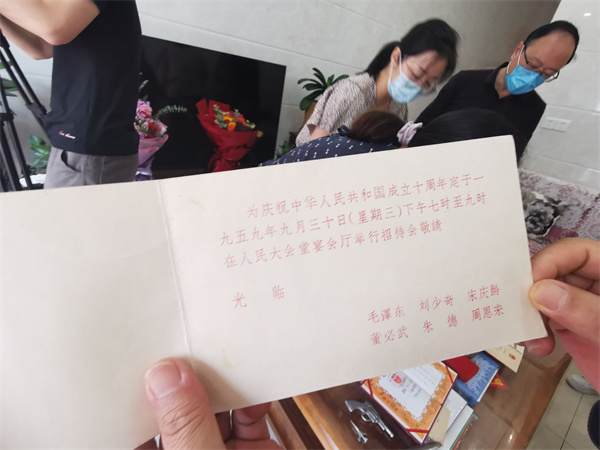 为庆祝中华人民共和国成立十周年定于一
九五九年九月三十日(星期三)下午七时至九时
在人民大会堂宴会厅举行招待会敬請
光 临
毛澤东 刘少奇 宋庆龄
董必武 朱德 周恩来